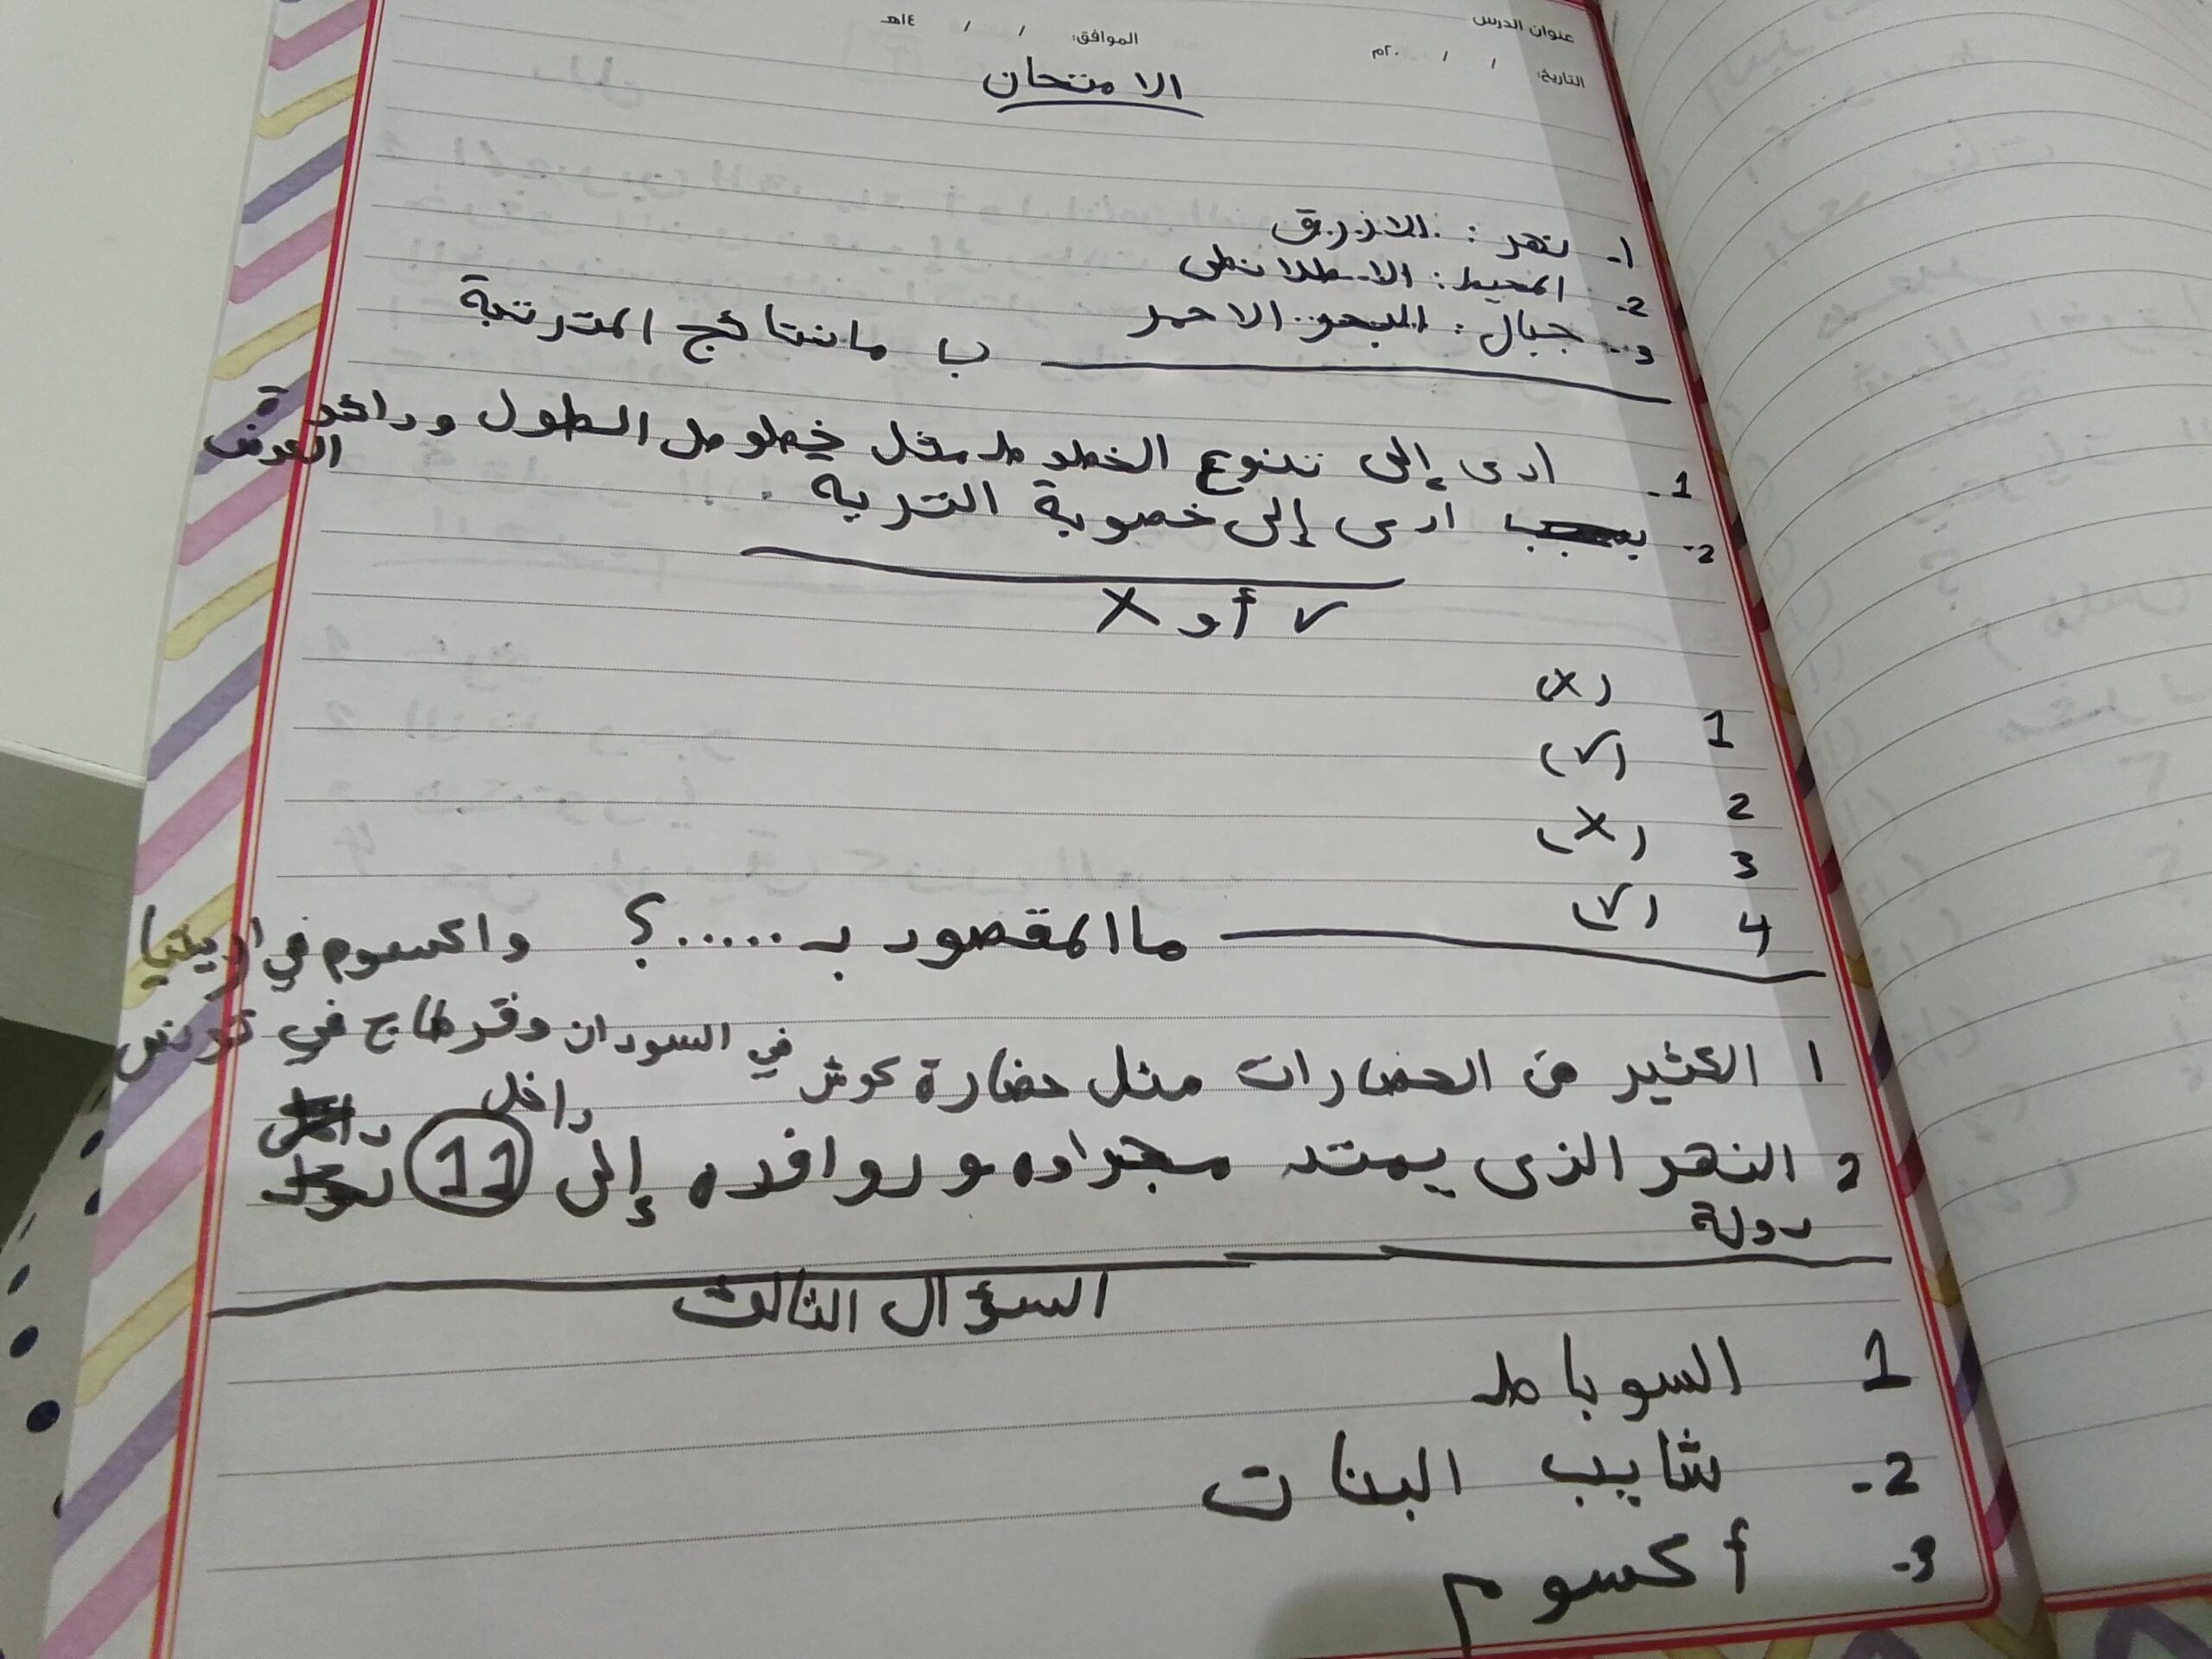 عنوان الدرس
التاريخ: / / ٢٠م الموافق: / / ١٤هـ
الامتحان
1- نهر : الازرق
2- المحيط : الاطلانطى
3- جبال : البحر الاحمر
ب مانتائج المترتبة
1- ادى إلى تنوع الخطوط مثل خطوط الطول ودائرة العرض
2- ادى إلى خصوبة التربه .
✓ أو X
1 (X)
2 (✓)
3 (X)
4 (✓)
ما المقصود بـ .....؟
1 الكثير من الحضارات مثل حضارة كوش في السودان وقرطاج في تونس واكسوم في اريتريا
2 النهر الذى يمتد مجراه وروافده إلى داخل 11
دولة
السؤال الثالث
1 السوباط
2- شايب البنات
3- أكسوم